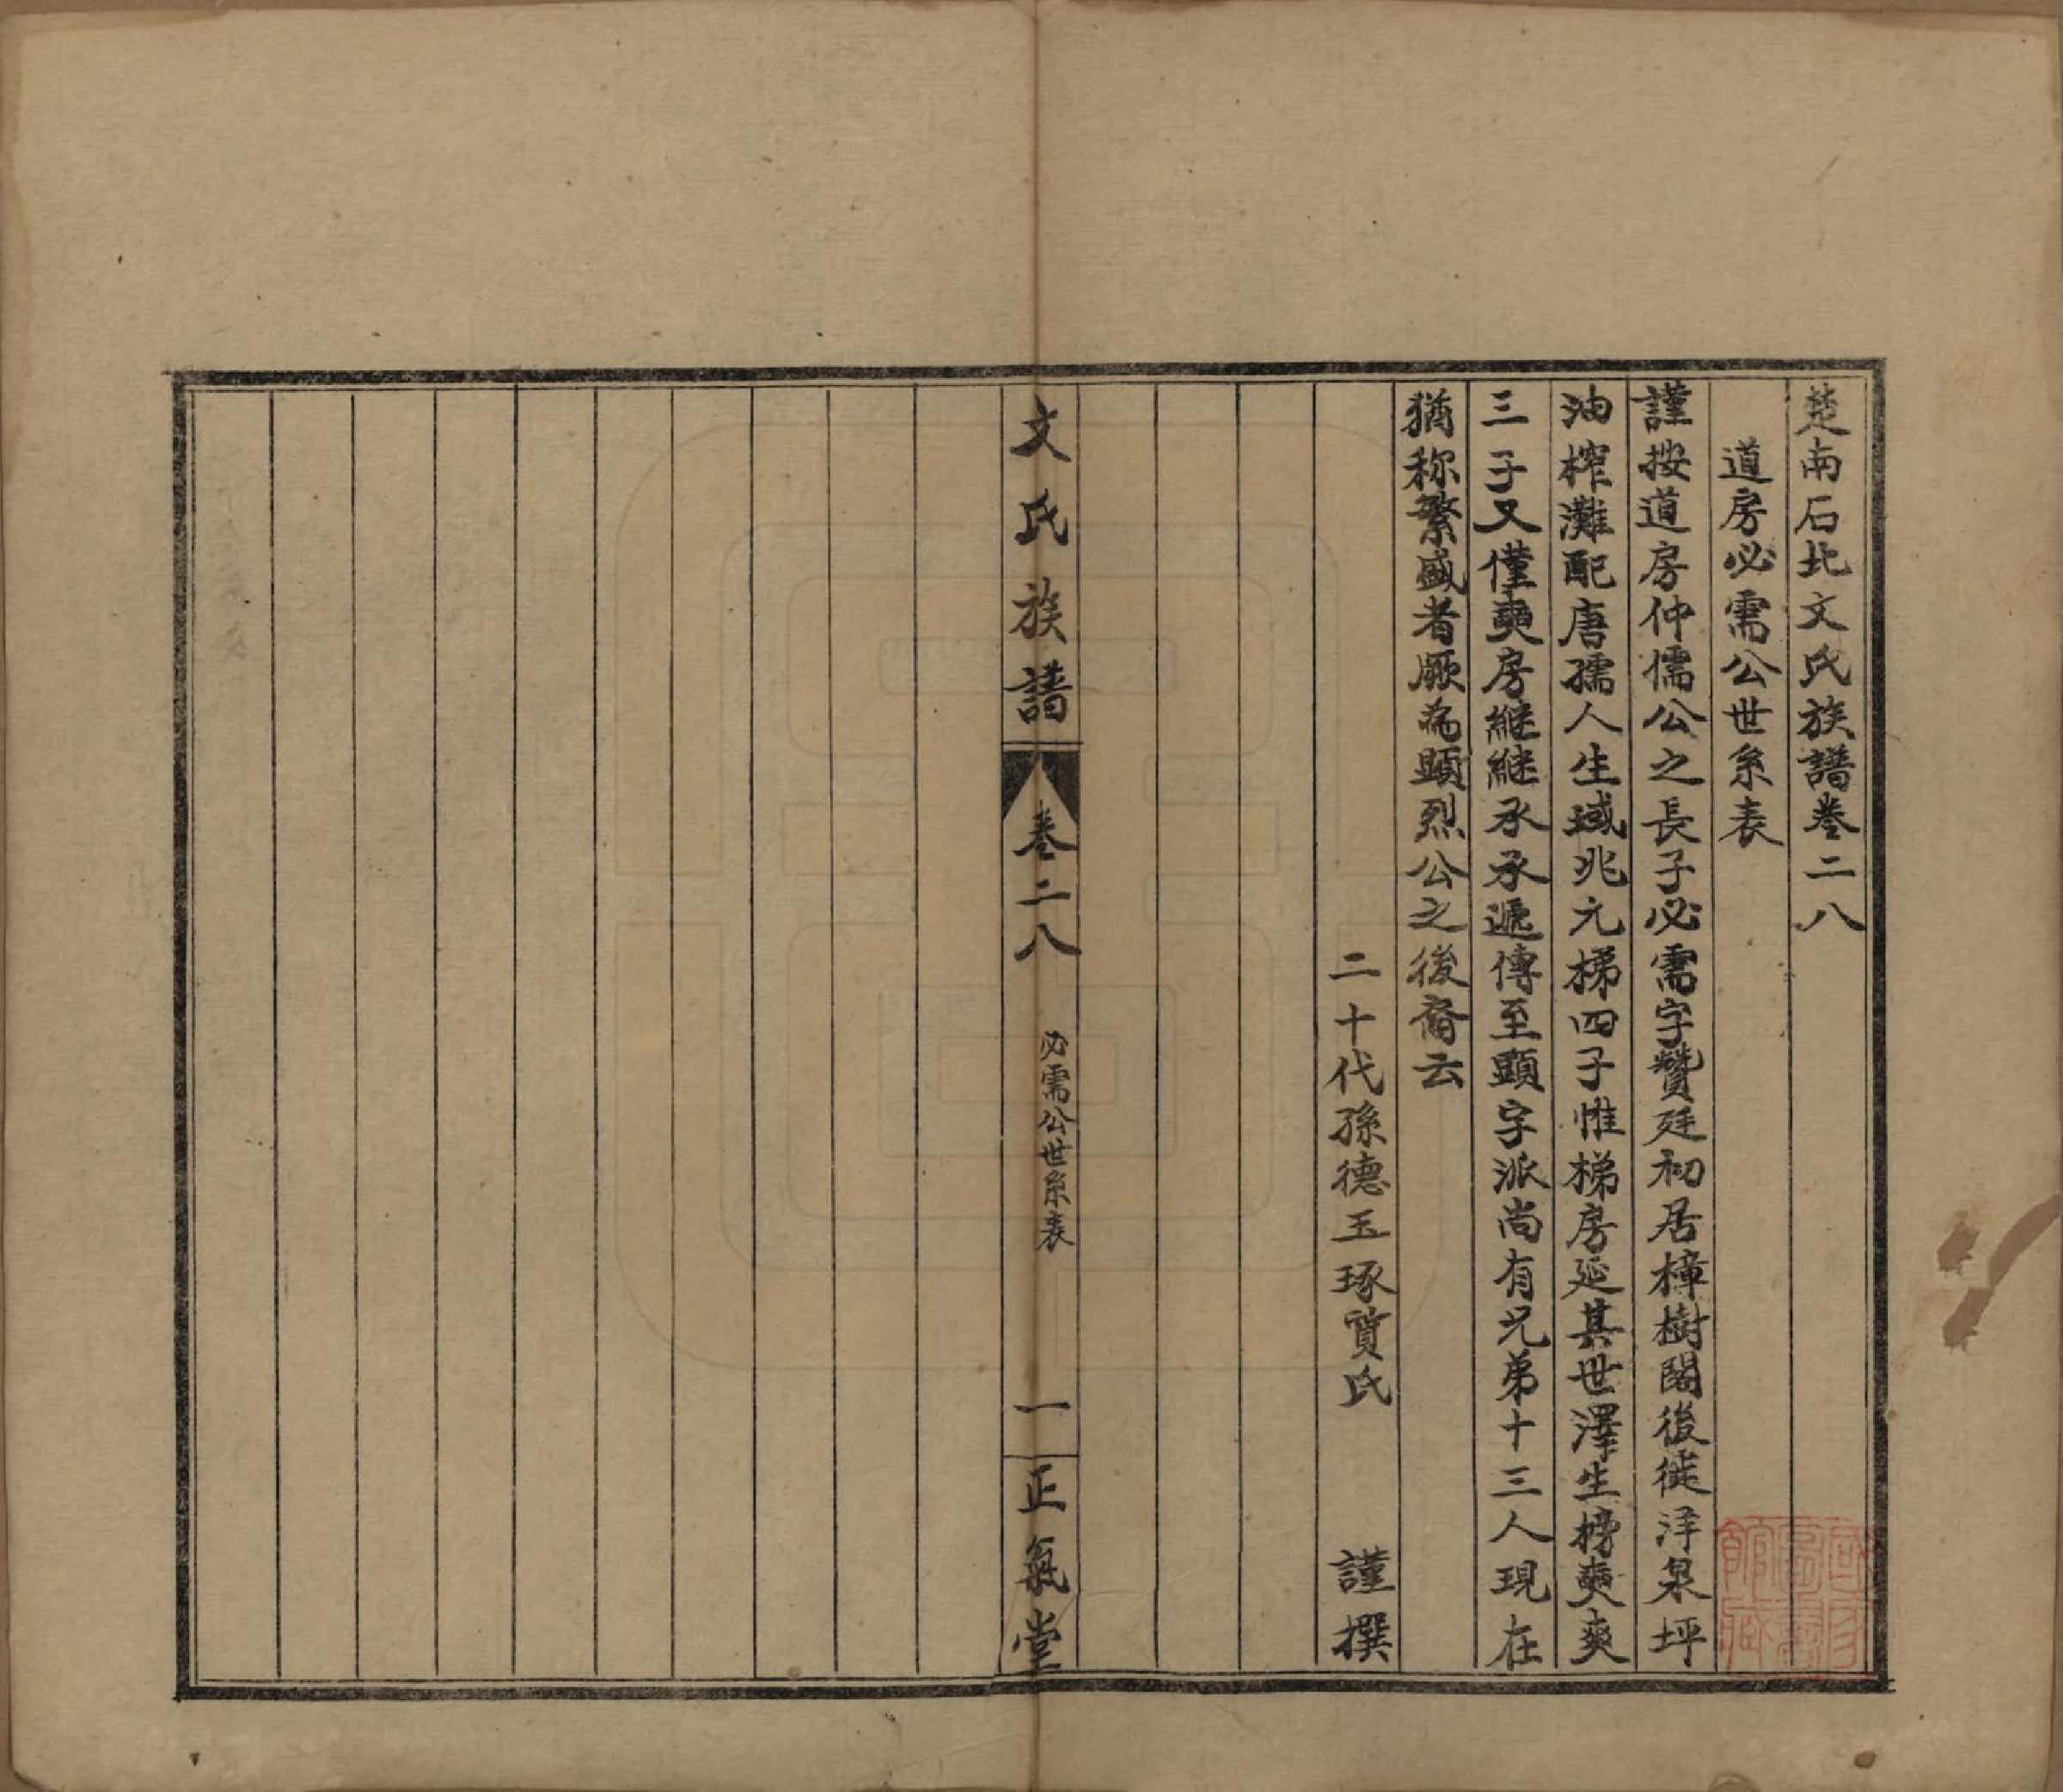 楚南石北文氏族譜卷二八
道房必需公世系表
謹按道房仲儒公之長子必需字贊廷初居樟樹閣後徙洋泉坪
油榨灘配唐孺人生域兆元梯四子惟梯房延其世澤生榜奭爽
三子又僅奭房繼継承承遞傳至顯字派尚有兄弟十三人現在
猶称繁盛者厥為顕烈公之後裔云
二十代孫德玉琢質氏 謹撰
文氏族譜 卷二八 必需公世系表 一 正氣堂
國家圖書館藏